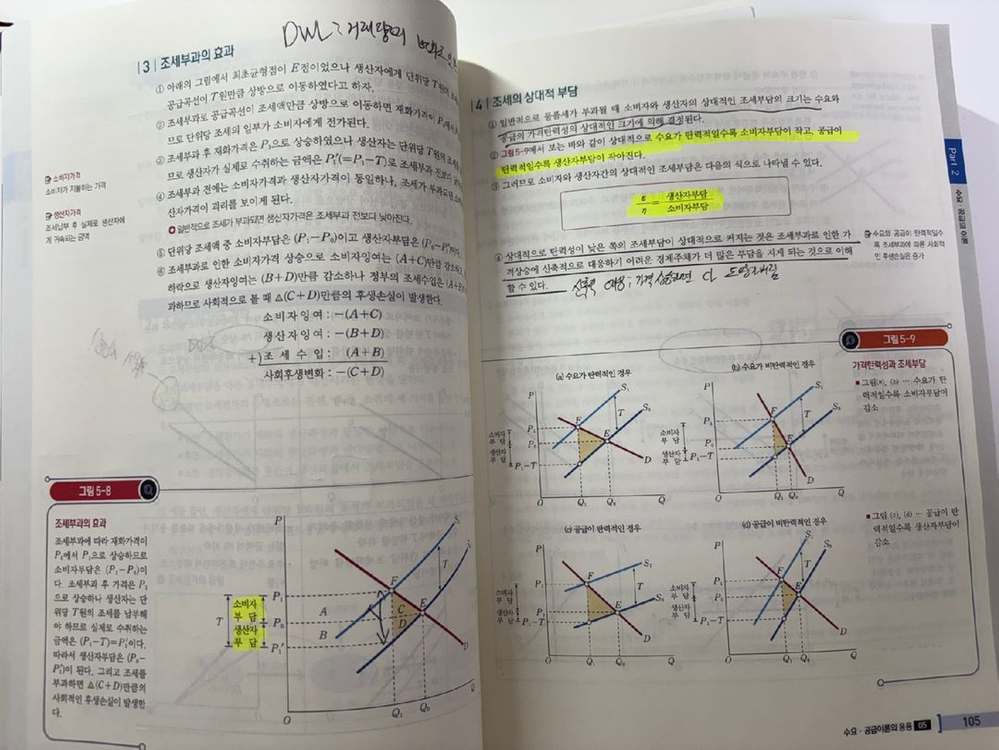 DWL
|3| 조세부과의 효과
① 아래의 그림에서 최초균형점이 E점이었으나 생산자에게 단위당 T원의 조세
공급곡선이 T원만큼 상방으로 이동하였다고 하자.
② 조세부과로 공급곡선이 조세액만큼 상방으로 이동하면 재화가격이
므로 단위당 조세의 일부가 소비자에게 전가된다.
③ 조세부과 후 재화가격은 P₁으로 상승하였으나 생산자는 단위당 T원의
므로 생산자가 실제로 수취하는 금액은 P₁′(=P₁−T)로 조세부과 전보다
④ 조세부과 전에는 소비자가격과 생산자가격이 동일하나, 조세가 부과되면
산자가격이 괴리를 보이게 된다.
일반적으로 조세가 부과되면 생산자가격은 조세부과 전보다 낮아진다.
⑤ 단위당 조세액 중 소비자부담은 (P₁−P₀)이고 생산자부담은
⑥ 조세부과로 인한 소비자가격 상승으로 소비자잉여는 (A+C)만큼 감소하고
하락으로 생산자잉여는 (B+D)만큼 감소하나 정부의 조세수입은
과하므로 사회적으로 볼 때 △(C+D)만큼의 후생손실이 발생한다.
소비자잉여 : −(A+C)
생산자잉여 : −(B+D)
+) 조세수입 : (A+B)
사회후생변화 : −(C+D)
소비자가격
소비자가 지불하는 가격
생산자가격
조세납부 후 실제로 생산자에
게 귀속되는 금액
그림 5-8
조세부과의 효과
조세부과에 따라 재화가격이
P₀에서 P₁으로 상승하므로
소비자부담은 (P₁−P₀)이
다. 조세부과 후 가격은 P₁
으로 상승하나 생산자는 단
위당 T원의 조세를 납부해
야 하므로 실제로 수취하는
금액은 (P₁−T)=P₁′이다.
따라서 생산자부담은 (P₀−
P₁′)이 된다. 그리고 조세를
부과하면 △(C+D)만큼의
사회적인 후생손실이 발생한
다.
P
T
소비자
부 담
생산자
부 담
P₁
P₀
P₁′
A
B
C
D
F
E
T
D
O
Q₁
Q₀
|4| 조세의 상대적 부담
① 일반적으로 물품세가 부과될 때 소비자와 생산자의 상대적인 조세부담의 크기는 수요와
공급의 가격탄력성의 상대적인 크기에 의해 결정된다.
② 그림 5-9에서 보는 바와 같이 상대적으로 수요가 탄력적일수록 소비자부담이 작고, 공급이
탄력적일수록 생산자부담이 작아진다.
③ 그러므로 소비자와 생산자간의 상대적인 조세부담은 다음의 식으로 나타낼 수 있다.
ε/η = 생산자부담/소비자부담
④ 상대적으로 탄력성이 낮은 쪽의 조세부담이 상대적으로 커지는 것은 조세부과로 인한 가
격상승에 신축적으로 대응하기 어려운 경제주체가 더 많은 부담을 지게 되는 것으로 이해
할 수 있다.
수요와 공급이 탄력적일수
록 조세부과에 따른 사회적
인 후생손실은 증가
Part 2
수요·공급의 이론
그림 5-9
가격탄력성과 조세부담
■ 그림(a), (b) … 수요가 탄
력적일수록 소비자부담이
감소
■ 그림 (c), (d) … 공급이 탄
력적일수록 생산자부담이
감소
(a) 수요가 탄력적인 경우
P
S₁
S₀
T
F
E
D
P₁
P₀
P₁−T
소비자
부 담
생산자
부 담
O
Q₁ Q₀
Q
(b) 수요가 비탄력적인 경우
P
S₁
S₀
T
F
E
D
P₁
P₀
P₁−T
소비자
부 담
생산자
부 담
O
Q₁ Q₀
Q
(c) 공급이 탄력적인 경우
P
S₁
T
S₀
F
E
D
P₁
P₀
P₁−T
소비자
부 담
생산자
부 담
O
Q₁ Q₀
Q
(d) 공급이 비탄력적인 경우
P
S₁
S₀
T
F
E
D
P₁
P₀
P₁−T
소비자
부 담
생산자
부 담
O
Q₁ Q₀
Q
수요·공급이론의 응용 05 105